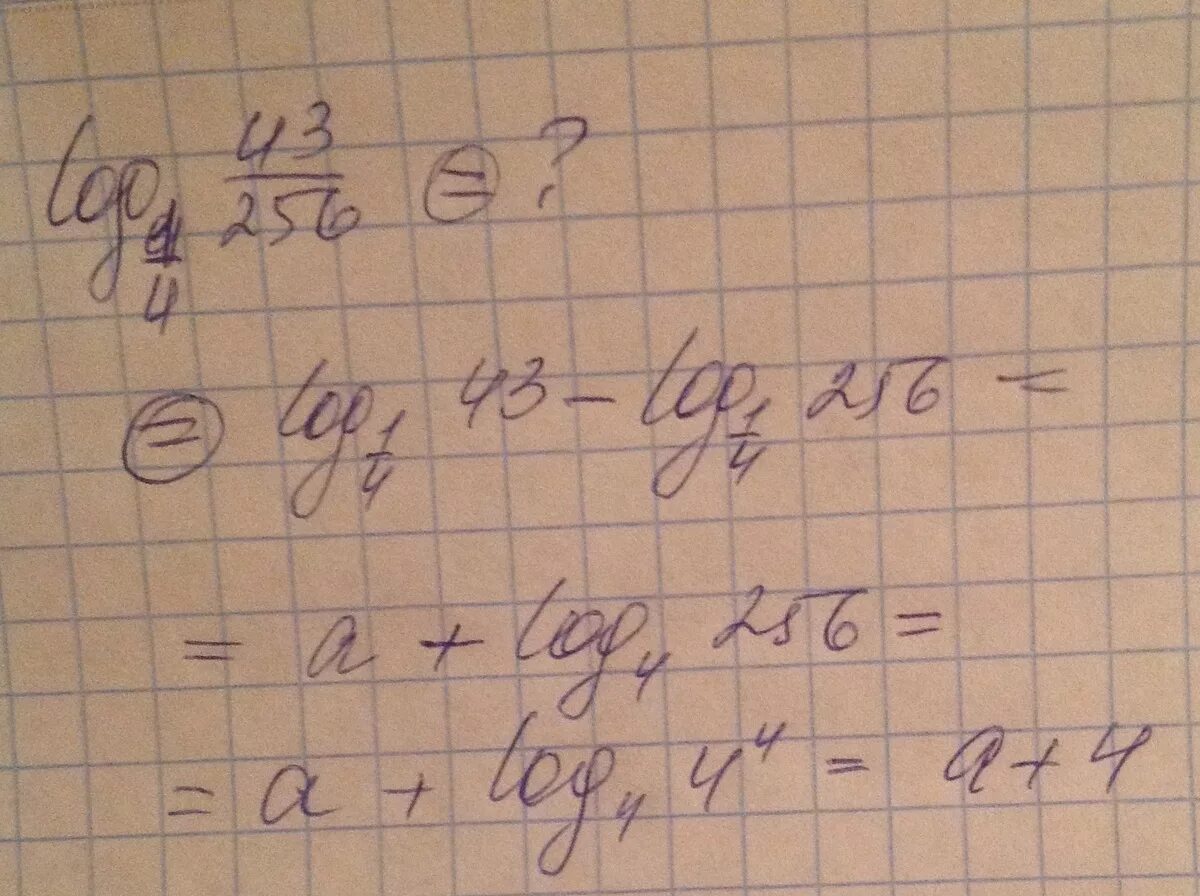 log_{1/4} 43/256 = ?
= log_{1/4} 43 - log_{1/4} 256 =
= a + log_4 256 =
= a + log_4 4^4 = a + 4